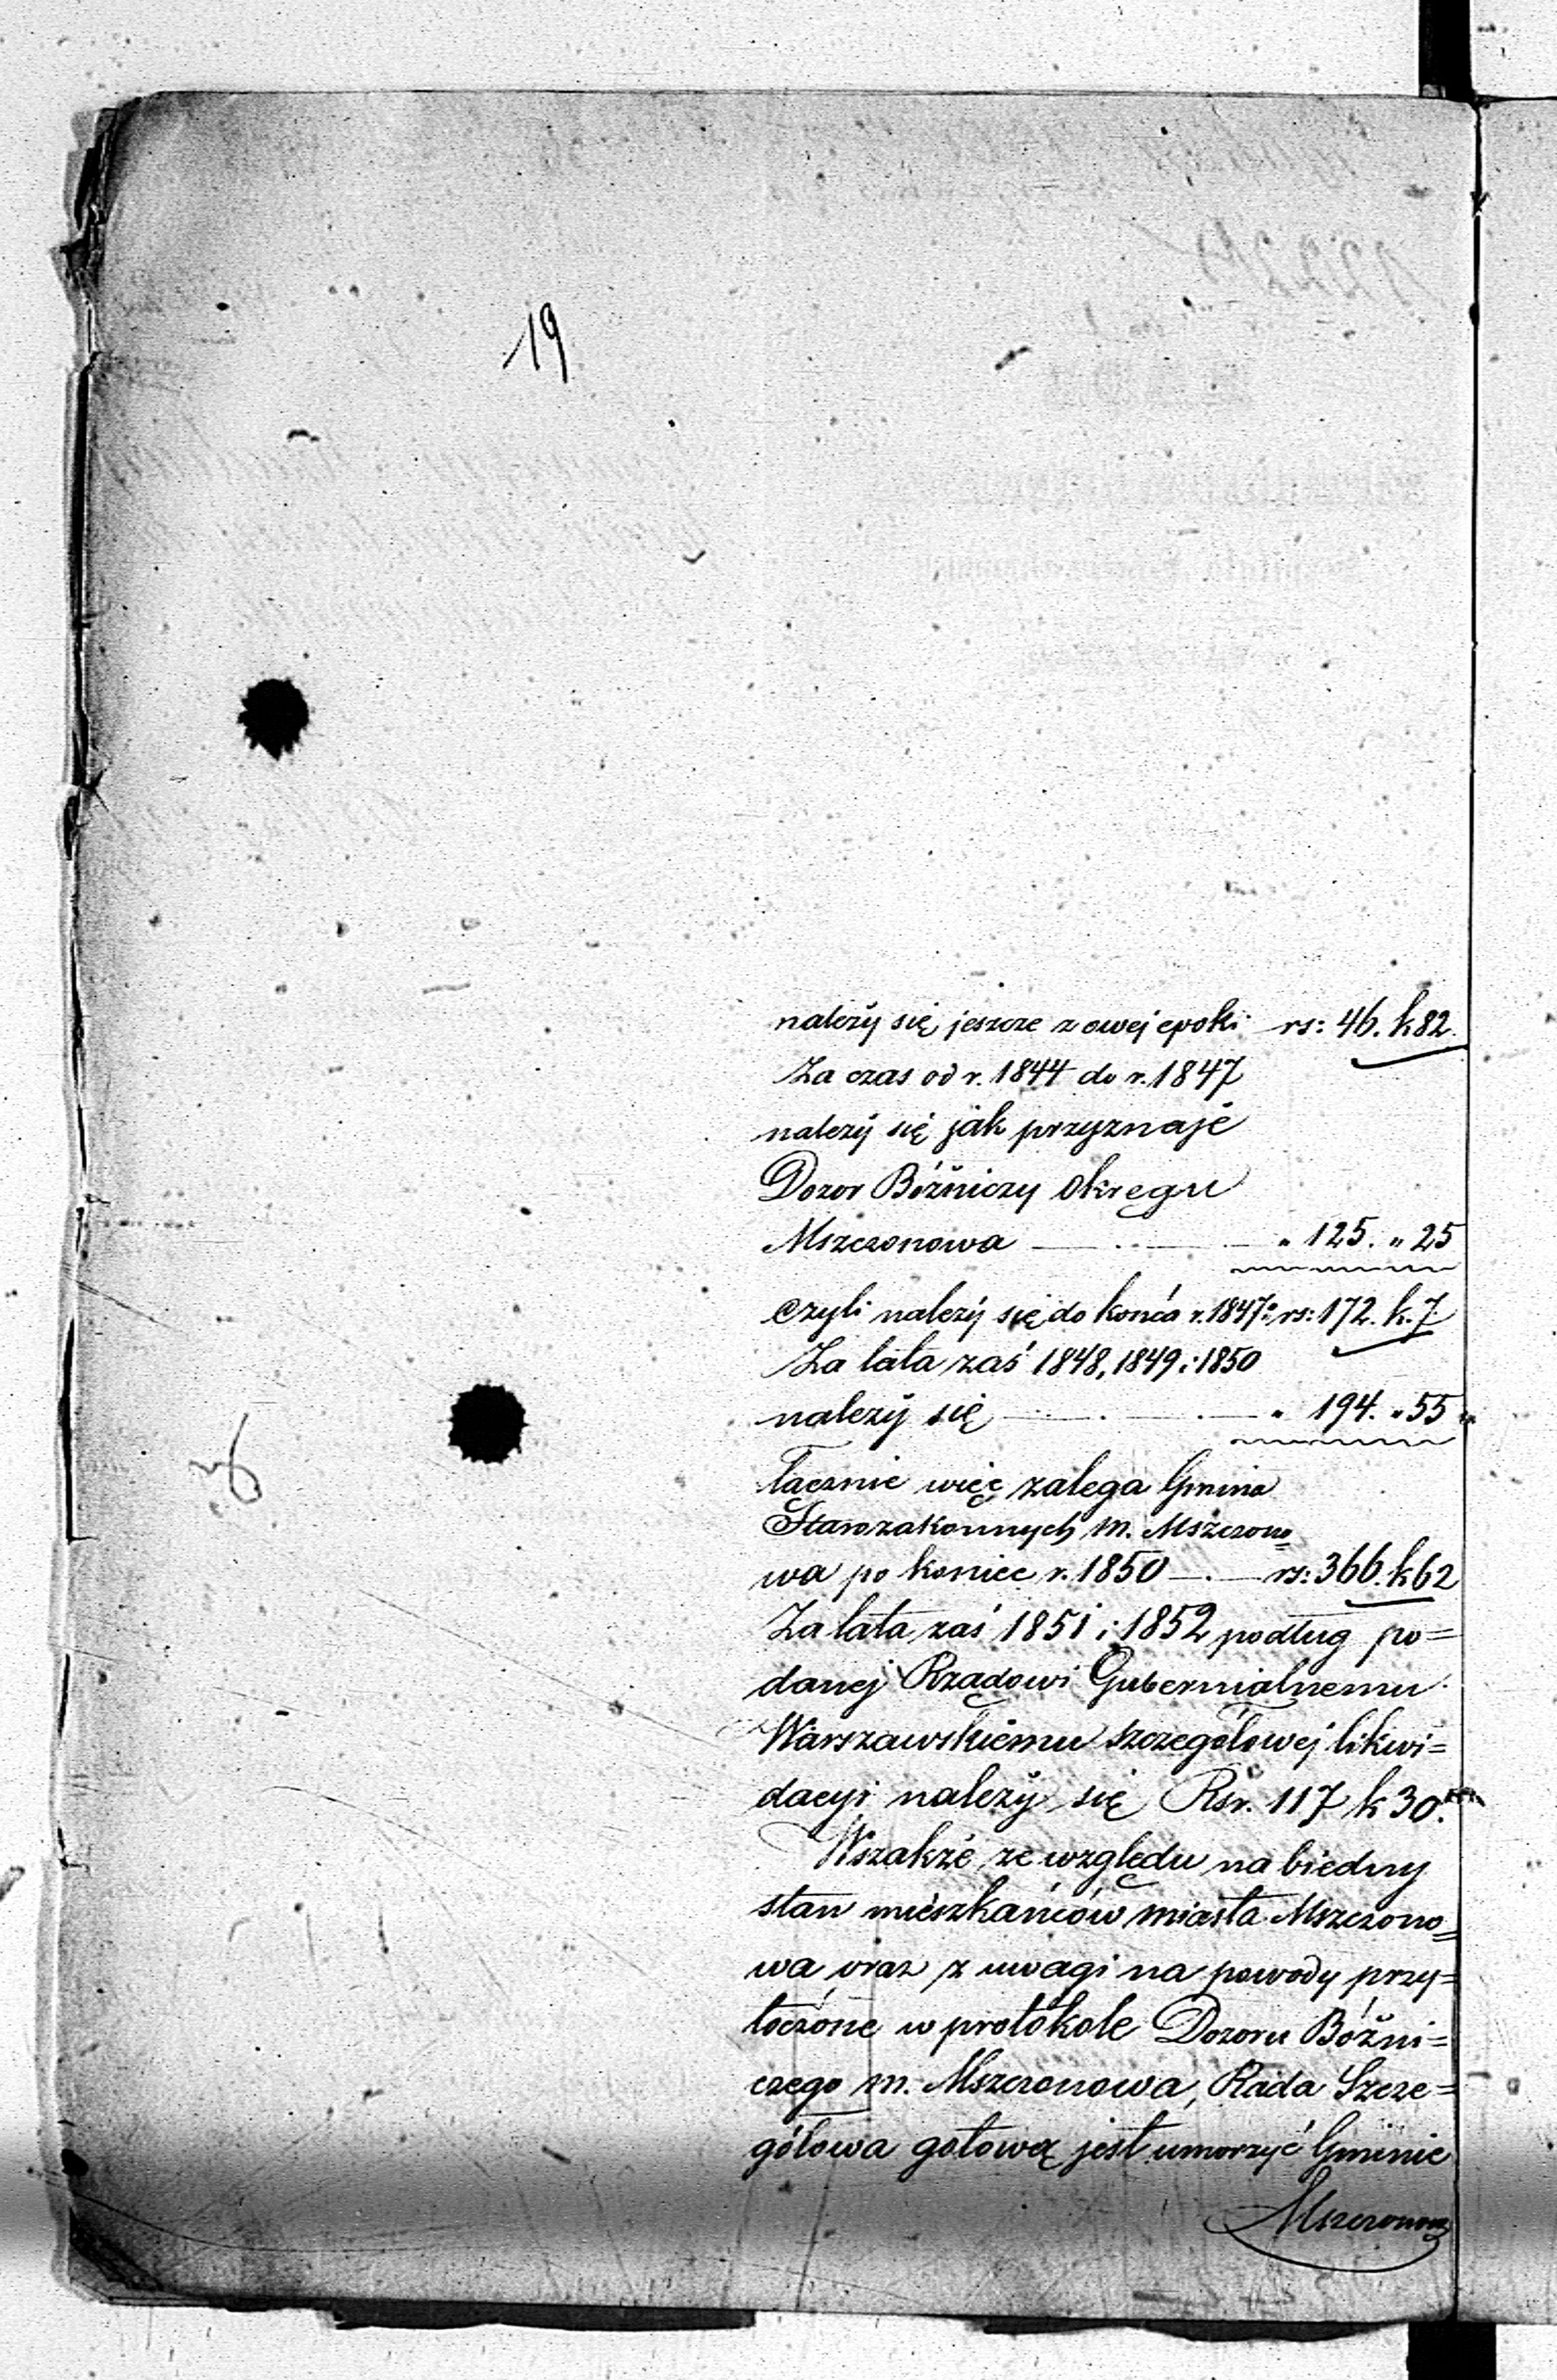 19
należy się jeszcze z owej epoki rs: 46. k 82.
Za czas od r. 1844 do r. 1847
należy się jak przyznaje
Dozor Bóżniczy Okręgu
Mszczonowa — . — — " 125. " 25
czyli należy się do końca r. 1847: rs: 172. k. 7.
Za lata zaś 1848, 1849 i 1850
należy się — . — . — " 194. " 55
łącznie więc zalega Gmina
Starozakonnych m. Mszczono=
wa po koniec r. 1850 — . — rs: 366. k 62
Za lata zaś 1851 i 1852 podług po=
danej Rządowi Gubernialnemu
Warszawskiemu szczegółowej likwi=
dacyi należy się Rsr. 117 k 30.
Wszakże ze względu na biedny
stan mieszkańców miasta Mszczono=
wa oraz z uwagi na powody przy=
toczone w protokole Dozoru Bóżni=
czego m. Mszczonowa, Rada Szcze=
gółowa gotową jest umorzyć Gminie